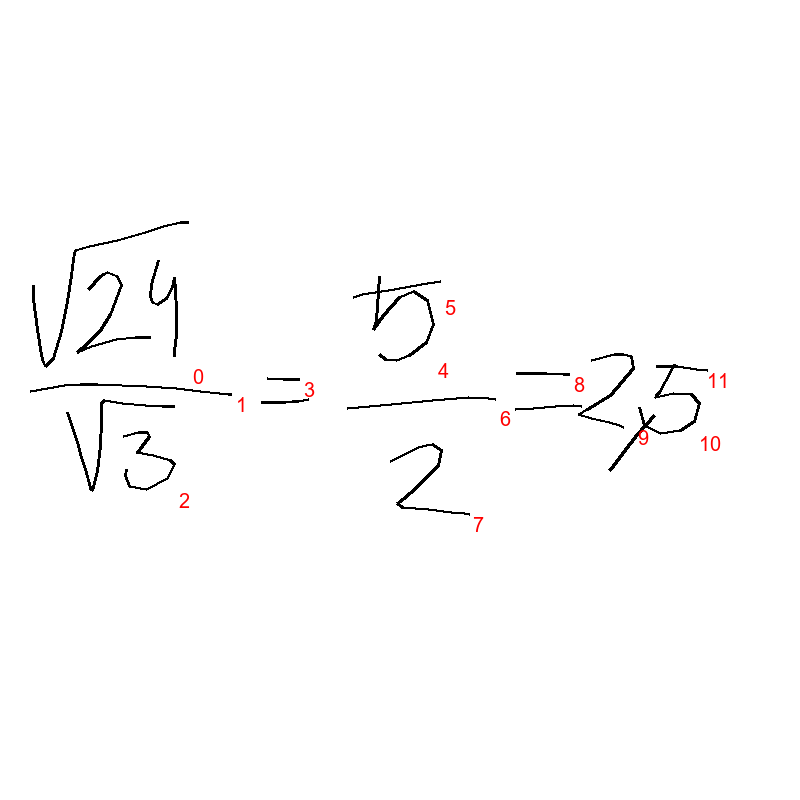 √24/√3 = 5/2 = 2,5
0 1 2 3 4 5 6 7 8 9 10 11